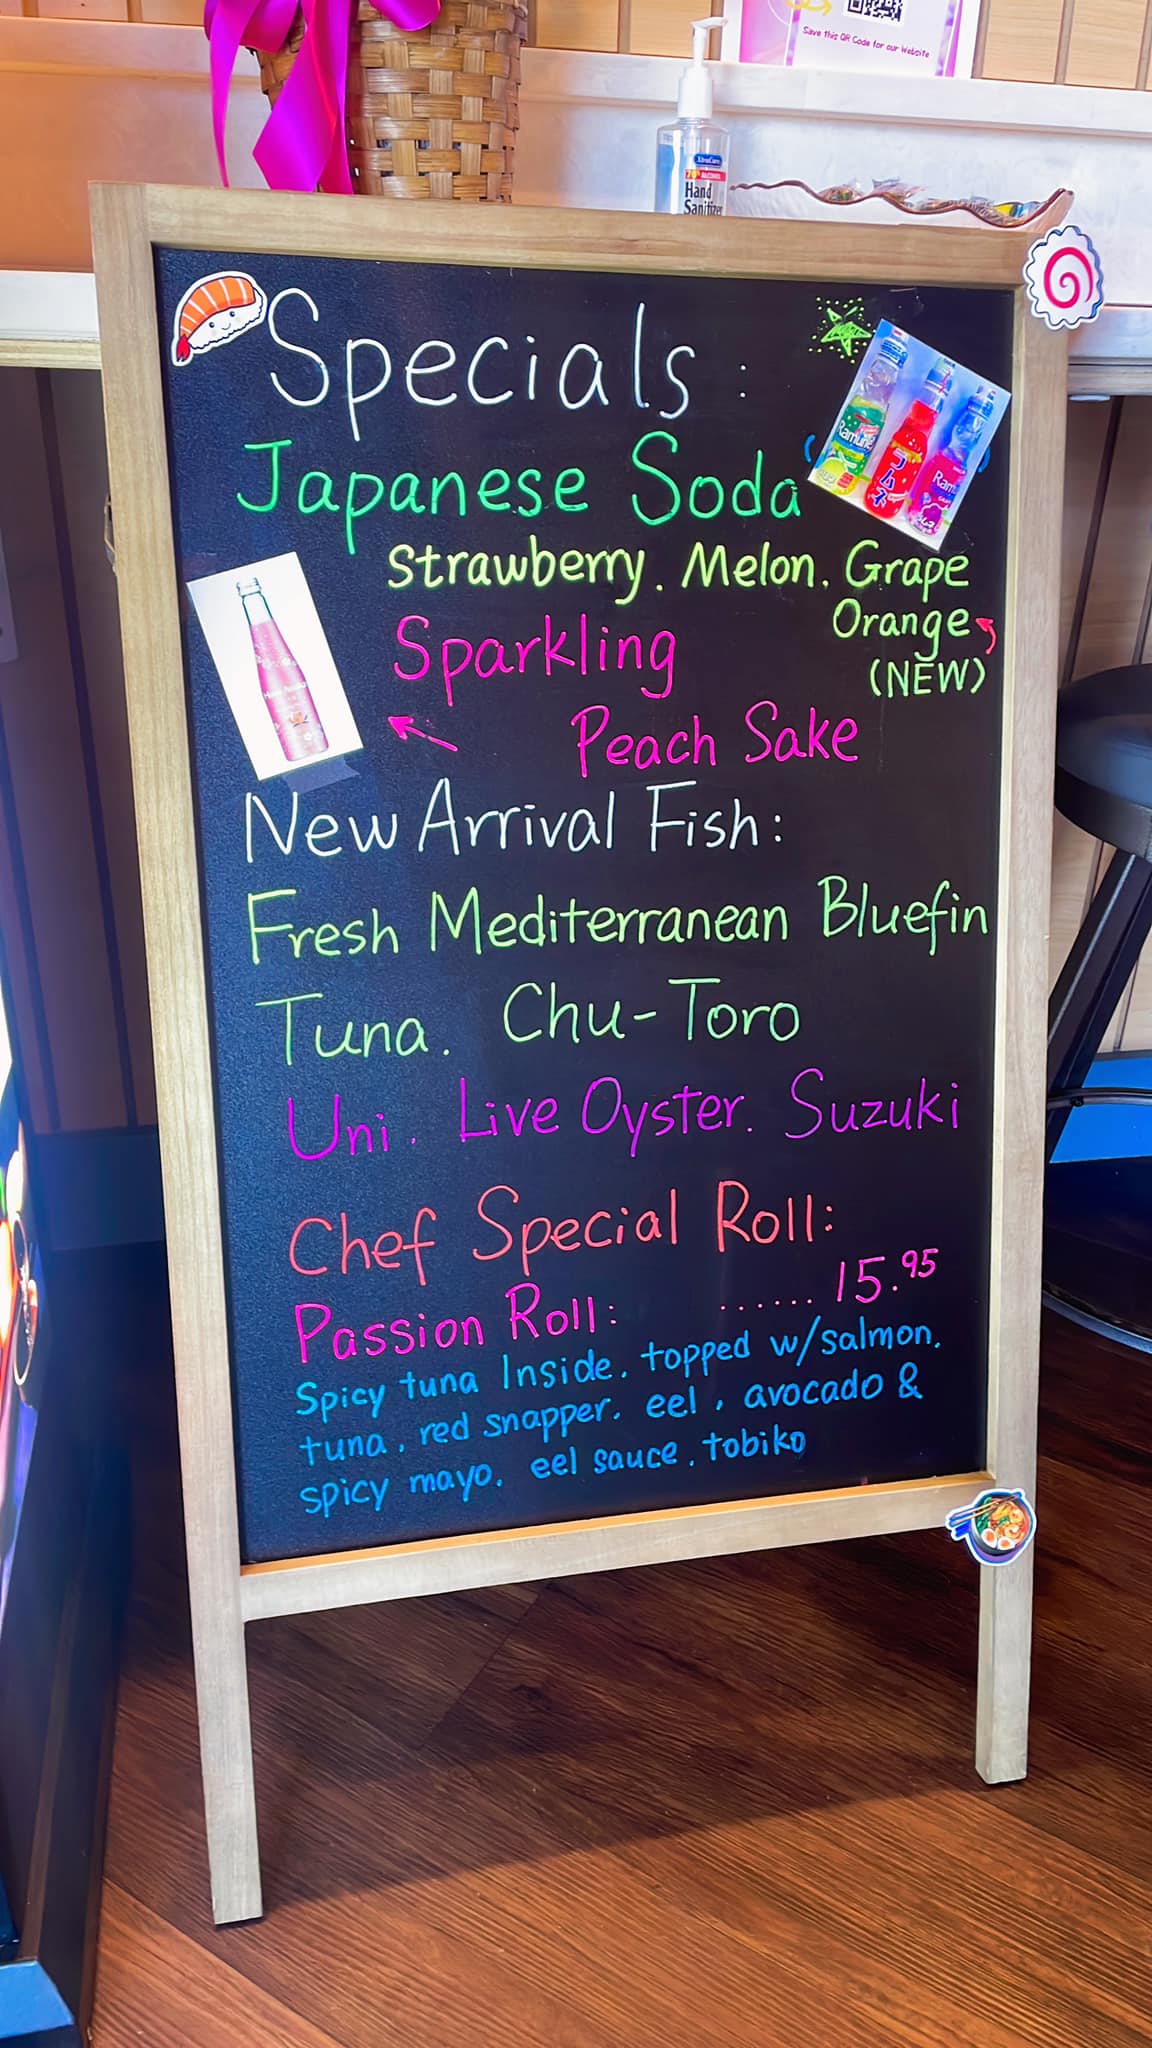 Save this QR Code for our Website
70% ALCOHOL
Hand
Sanitizer
Specials:
Ramune
ラムネ
Japanese Soda
Strawberry. Melon. Grape
Orange
(NEW)
Sparkling
Peach Sake
New Arrival Fish:
Fresh Mediterranean Bluefin
Tuna. Chu-Toro
Uni. Live Oyster. Suzuki
Chef Special Roll:
Passion Roll: ...... 15.95
Spicy tuna Inside. topped w/salmon.
tuna. red snapper. eel. avocado &
spicy mayo. eel sauce. tobiko